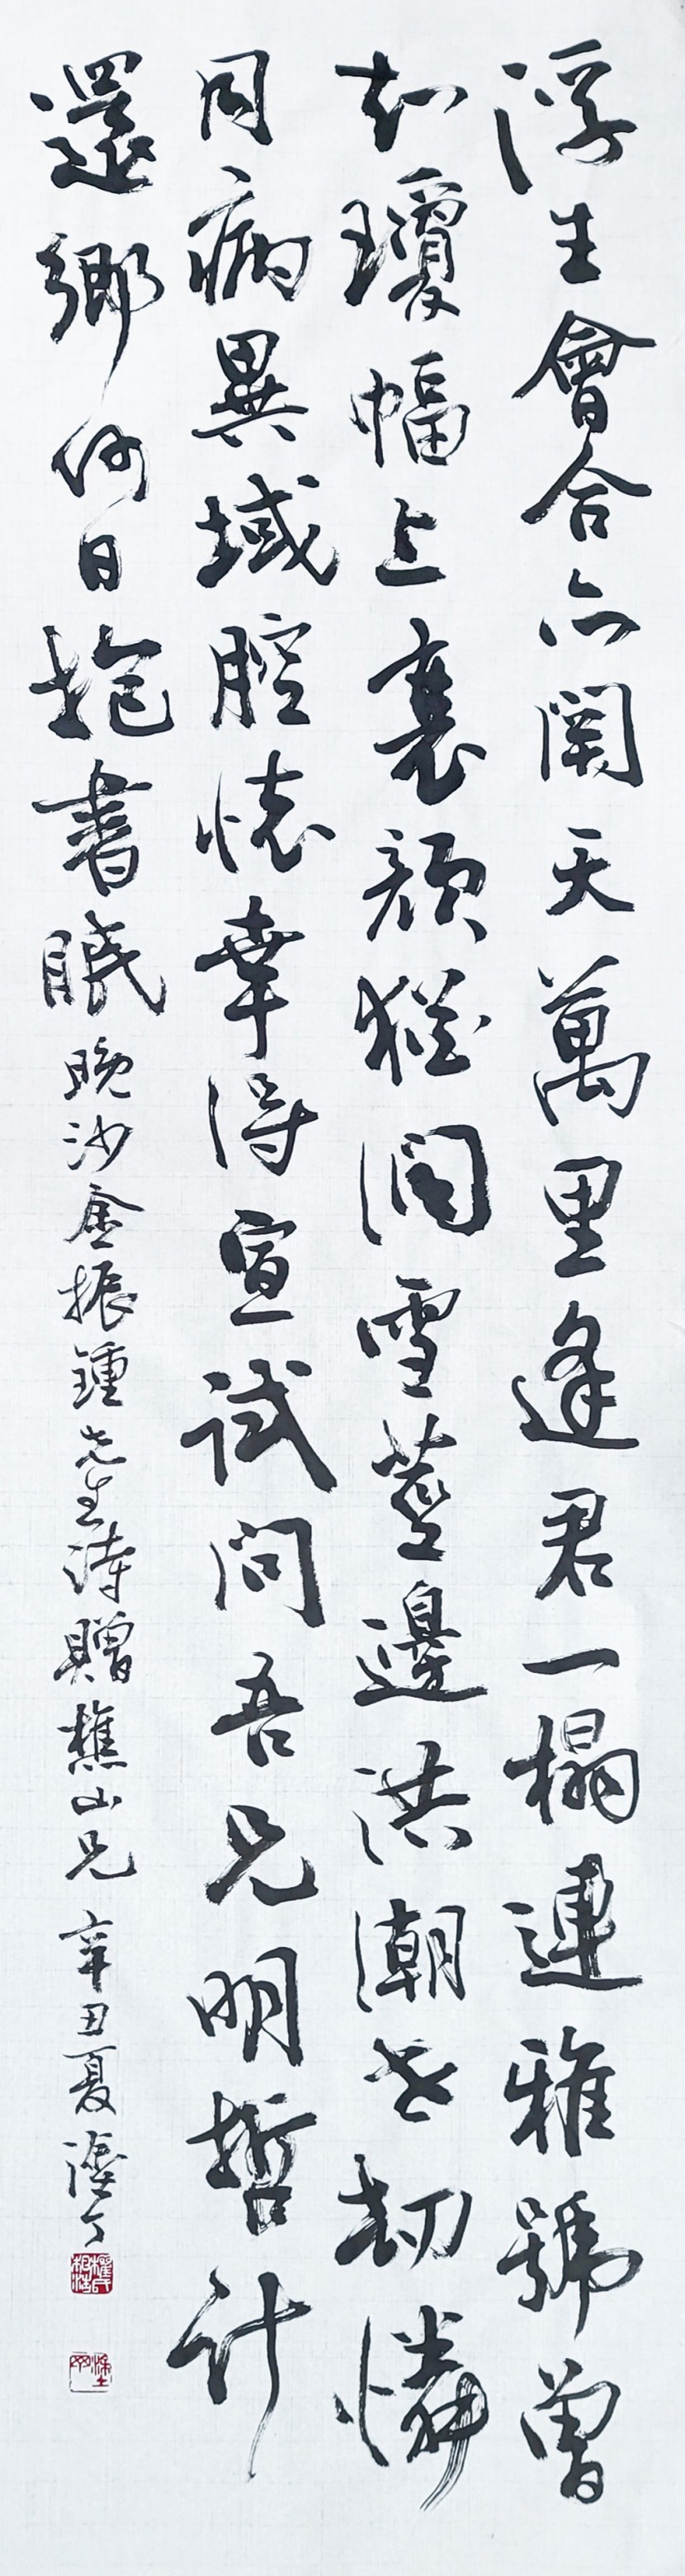 浮生會合亦關天萬里逢君一榻連雅號曾
知瓊幅上衰顔猶潤雪莖邊洪潮世劫憐
同病異域腔懷幸得宣試問吾兄明哲計
還鄉何日抱書眠晚沙金振鍾先生詩贈樵山兄 辛丑夏